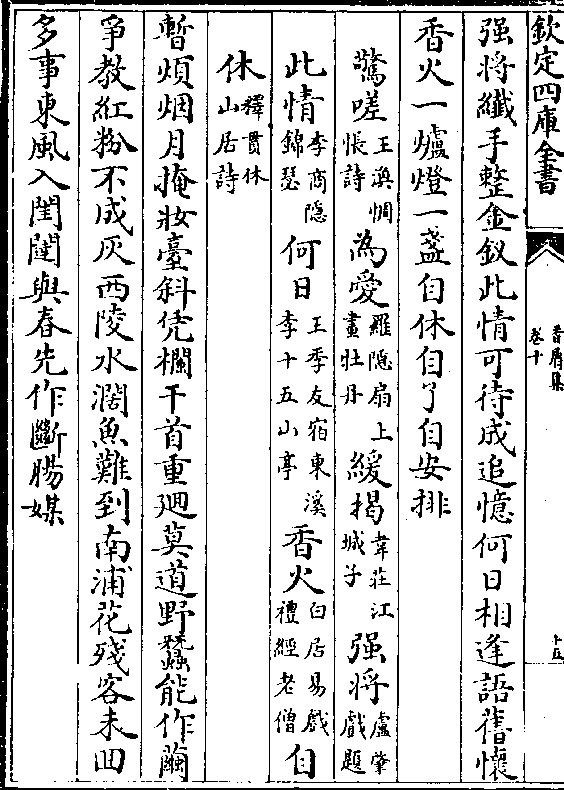 欽定四庫全書
香屑集
卷十
十五
强將纖手整金釵此情可待成追憶何日相逢語舊懷
香火一爐燈一盞自休自了自安排
驚嗟王渙惆悵詩為愛羅隠扇上畫牡丹緩揭韋莊江城子强將盧肇戲題
此情李商隠錦瑟何日王季友宿東溪李十五山亭香火白居易戲禮經老僧自
休釋貫休山居詩
暫煩烟月掩妝臺斜凭欄干首重廻莫道野蠶能作繭
爭教紅粉不成灰西陵水濶魚難到南浦花殘客未回
多事東風入閨闥與春先作斷腸媒